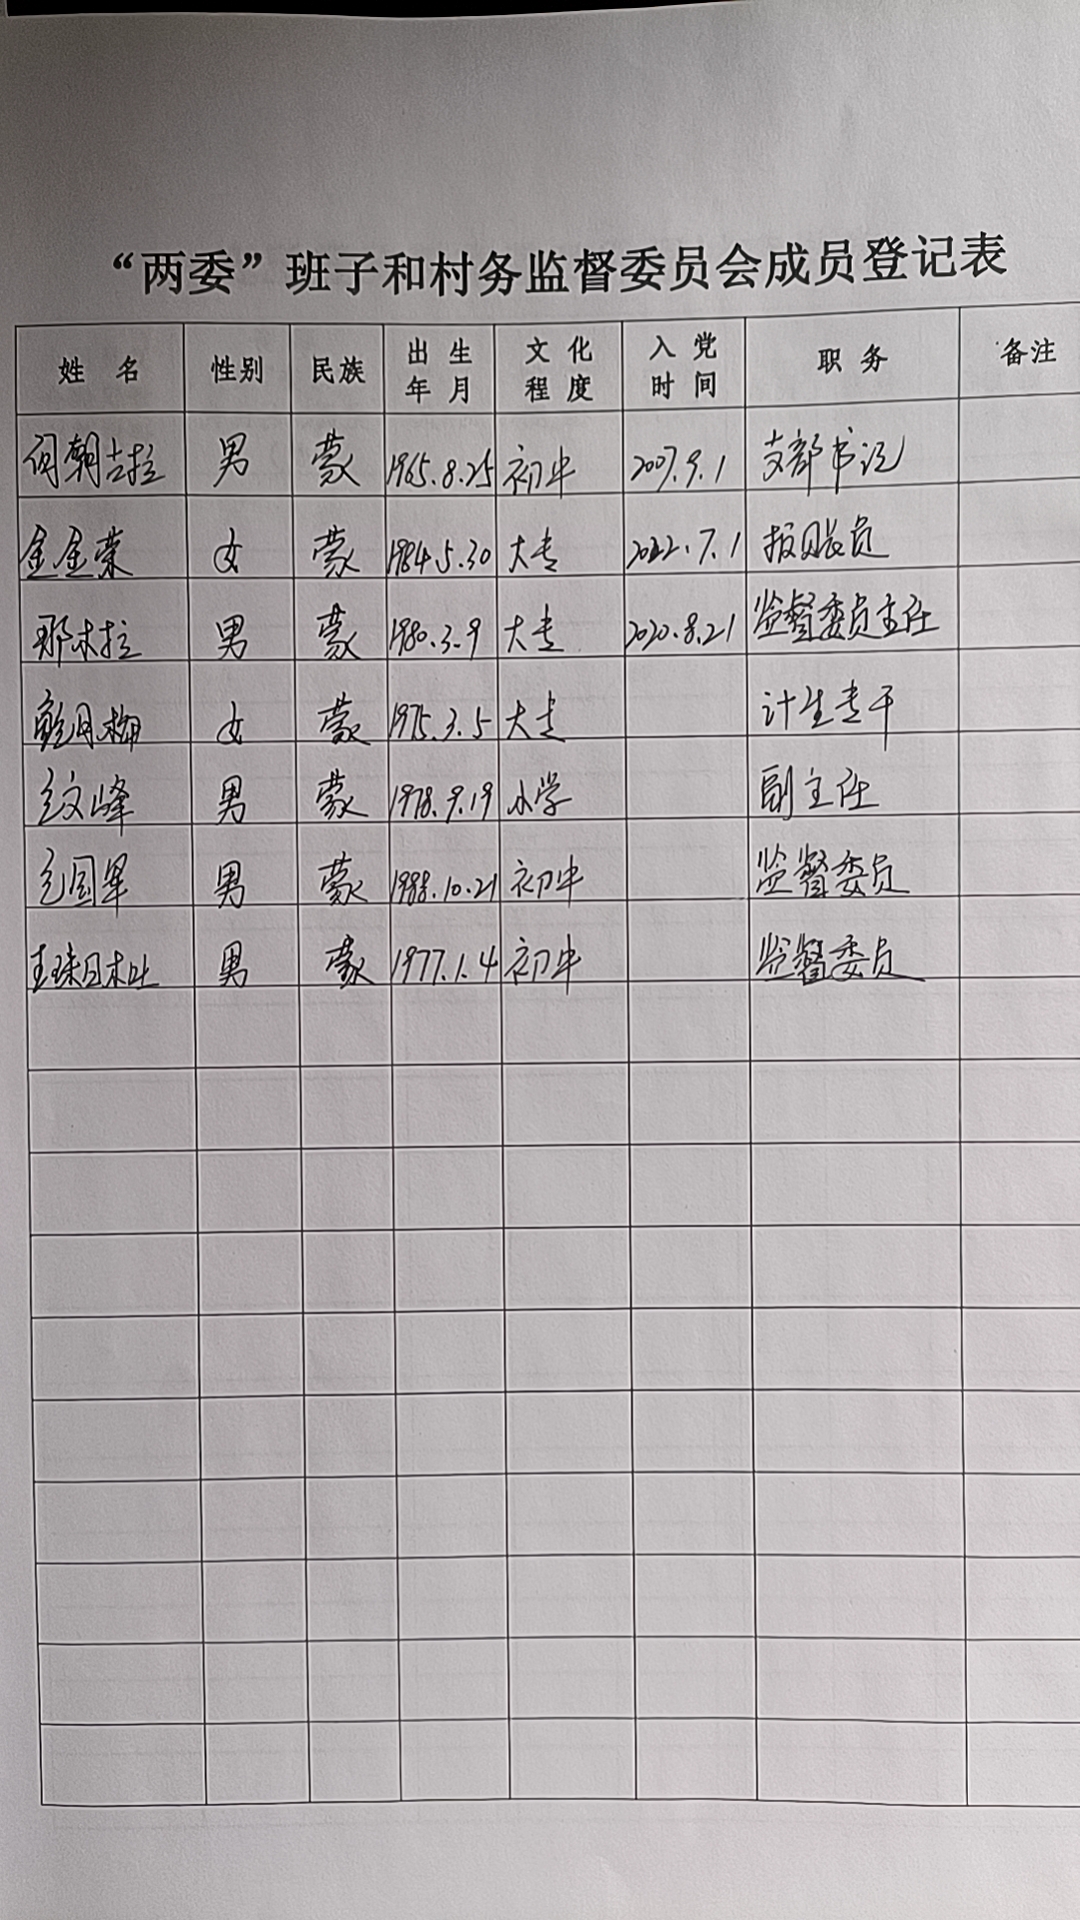 “两委”班子和村务监督委员会成员登记表
姓 名 性别 民族 出生年月 文化程度 入党时间 职务 备注
朝古拉 男 蒙 1965.8.25 初中 2007.9.1 支部书记
金金荣 女 蒙 1984.5.30 大专 2022.7.1 报账员
那木拉 男 蒙 1980.3.9 大专 2020.8.21 监督委员主任
鲍月梅 女 蒙 1975.3.5 大专 计生专干
包文峰 男 蒙 1978.9.19 小学 副主任
包国军 男 蒙 1988.10.21 初中 监督委员
男 蒙 1977.1.4 初中 监督委员